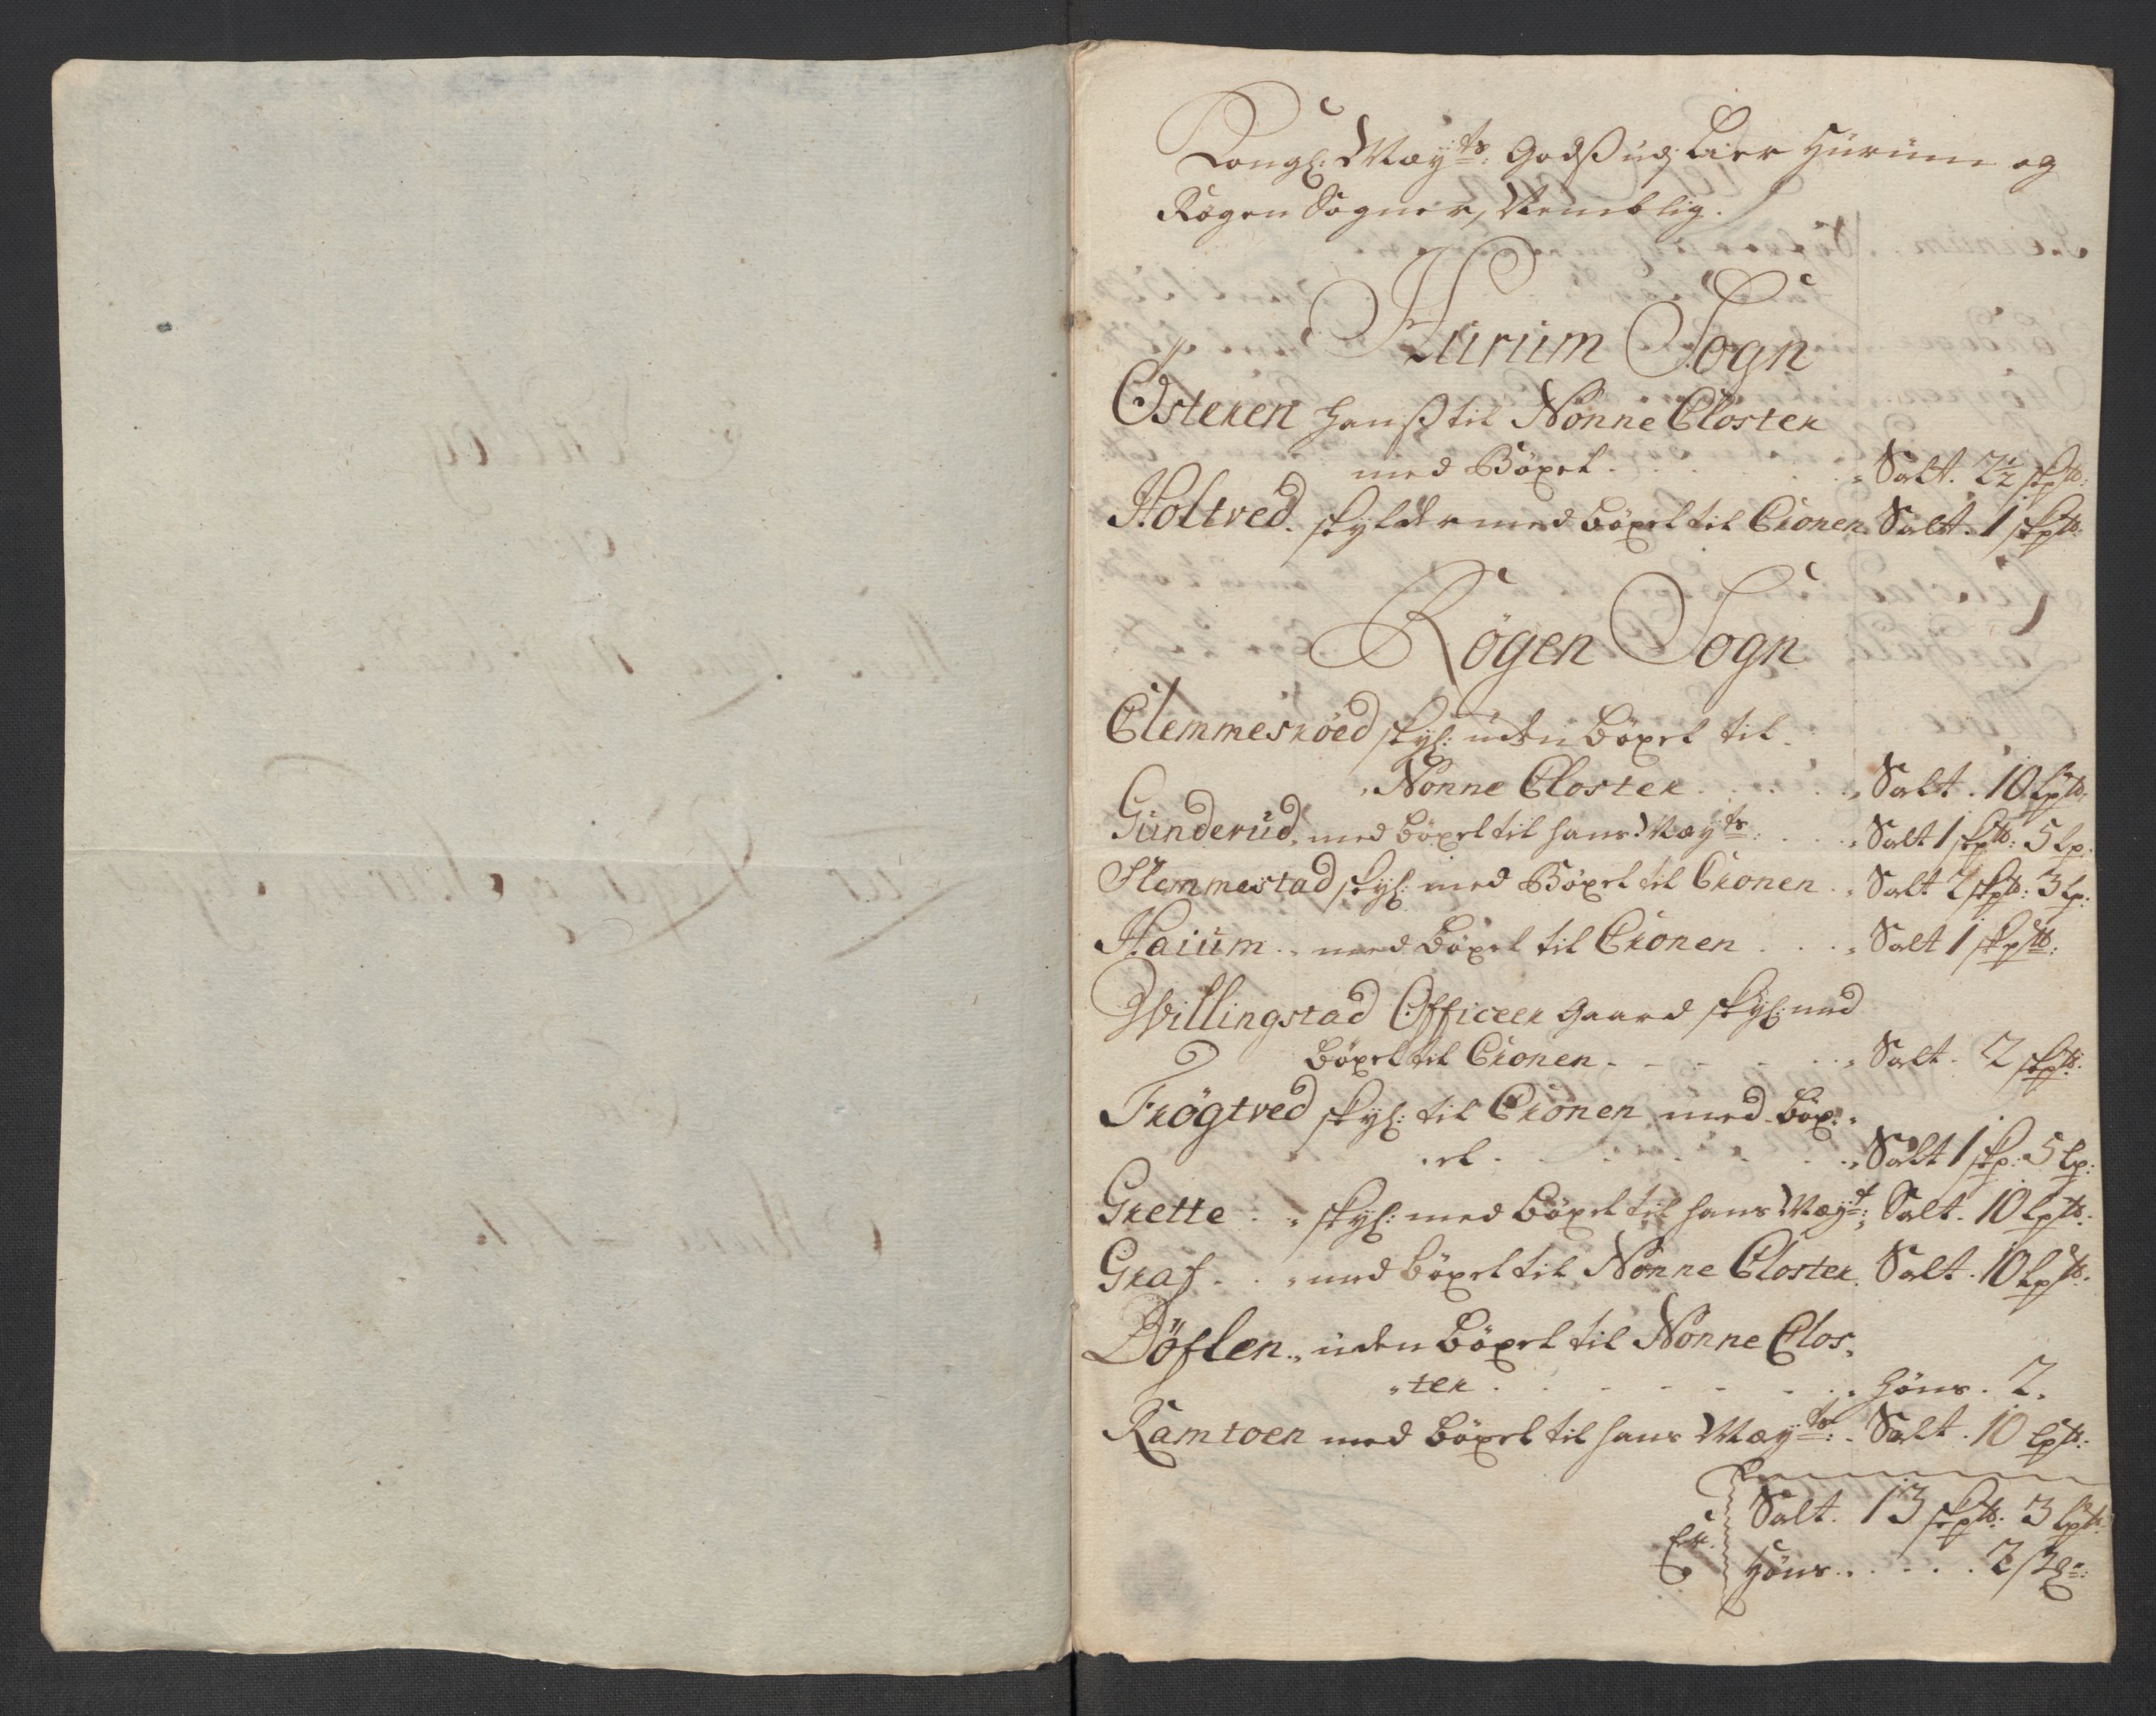 Kongl: Mayts: Godß udj Lier Hurum og
Røgen Sogner, Nemblig.
Hurum Sogn
Østeren Hanß til Nonne Closter
med Böxel . . . . Salt. 2½ skp℔:
Holtved. skylder med böxel til Cronen. Salt. 1 skp℔:
Rögen Sogn
Clemmesröed skyl: uden böxel til
Nonne Closter . . . . Salt. 10 Lp℔:
Gunderud, med böxel til hans Mayts: . . Salt 1 skp℔: 5 Lp:
Slemmestad skyl: med Böxel til Cronen . Salt 2 skp℔: 3 Lp:
Haium . . med böxel til Cronen . . . Salt 1 skp℔:
Willingstad Officeer Gaard skyl: med
böxel til Cronen - - - - . Salt. 2 skp℔:
Frögtved skyl: til Cronen med böx:
el . - - - - . Salt 1 skp: 5 Lp:
Grette . . skyl: med böxel til hans Mayt: Salt. 10 Lp℔:
Graf . . med böxel til Nonne Closter. Salt. 10 Lp℔:
Döflen . uden böxel til Nonne Clos,
ter . . . - - - . . Höns . 2.
Ramtoen med böxel til hans Mayts: . Salt. 10 Lp℔:
Salt. 13 skp℔: 3 Lp℔:
Er.
Höns . . - - . 2 st: